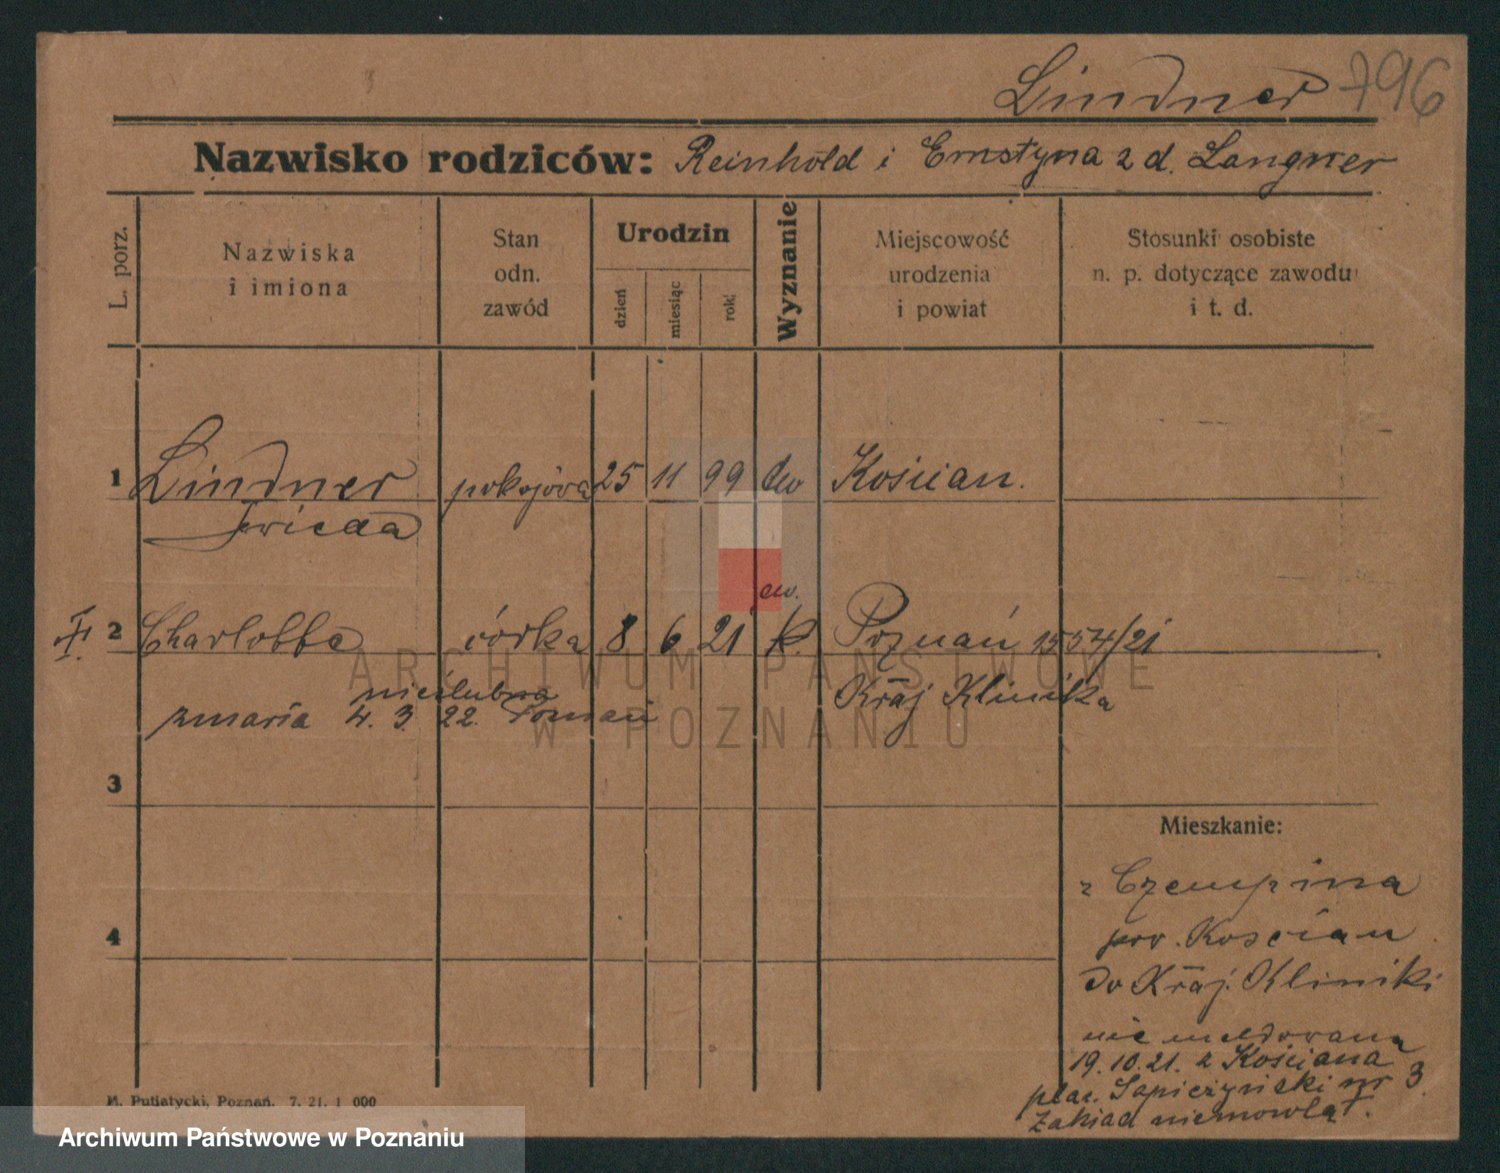 Lindner 796
Nazwisko rodziców: Reinhold i Ernstyna z d. Langner
L. porz.
Nazwiska i imiona
Stan odn. zawód
Urodzin
dzień
miesiąc
rok
Wyznanie
Miejscowość urodzenia i powiat
Stosunki osobiste n. p. dotyczące zawodu i t. d.
1 Lindner pokojówa 25 11 99 ew Kościan.
Frieda
ew.
2 Charlotte córka 8 6 21 k. Poznań 1554/21
nieślubna Kraj Klinika
zmarła 4. 3. 22. Poznań
3
Mieszkanie:
z Czempina
4 pow. Kościan
do Kraj. Kliniki
nie meldowana
19.10.21. z Kościana
plac. Sapieżyński nr 3
Zakład niemowląt.
M. Putiatycki, Poznań. 7. 21. 1 000
ARCHIWUM PAŃSTWOWE
W POZNANIU
Archiwum Państwowe w Poznaniu